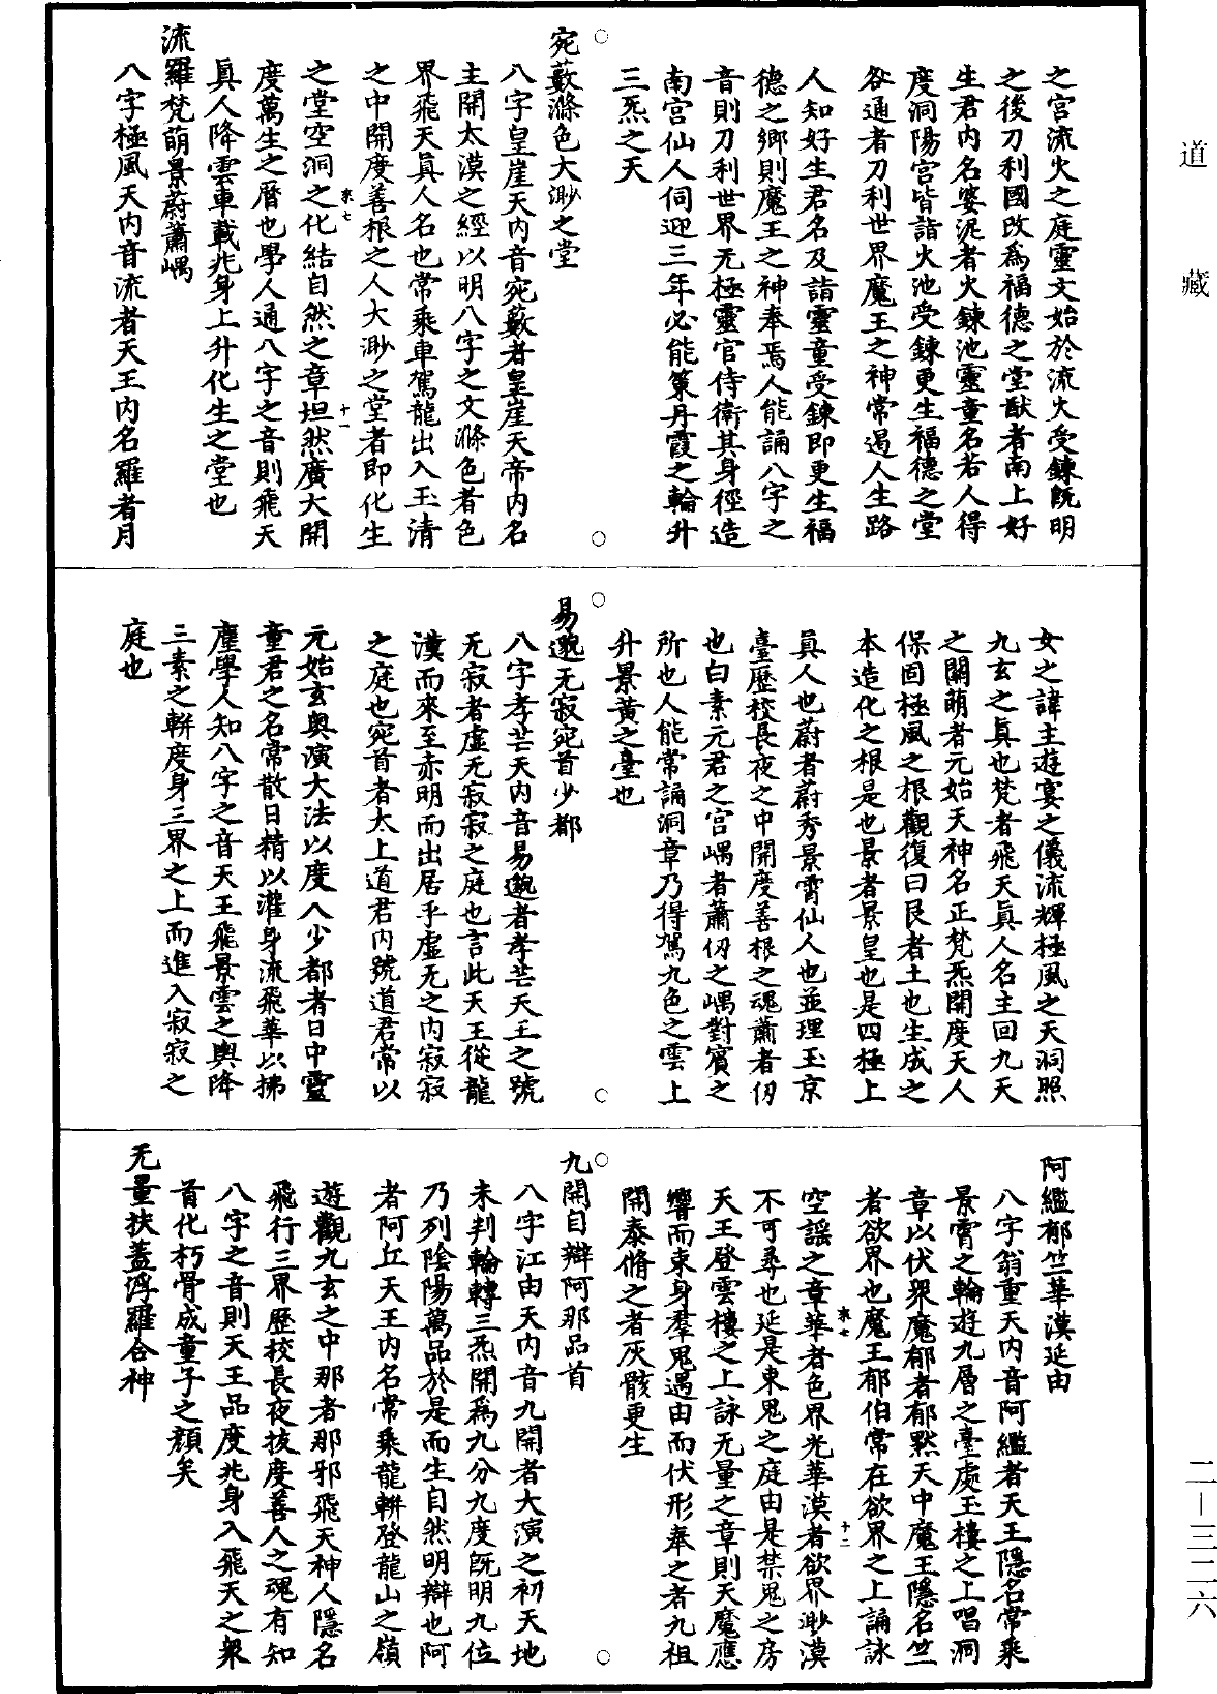 道藏
之宮流火之庭靈文始於流火受鍊既明
之後刀利國改為福德之堂猷者南上好
生君內名婆泥者火鍊池靈童名若人得
度洞陽宮皆詣火池受鍊更生福德之堂
谷通者刀利世界魔王之神常遏人生路
人知好生君名及詣靈童受鍊即更生福
德之鄉則魔王之神奉焉人能誦八字之
音則刀利世界无極靈官侍衛其身徑造
南宮仙人伺迎三年必能策丹霞之輪升
三炁之天
宛藪滌色大渺之堂
八字皇崖天內音宛藪者皇崖天帝內名
主開太漠之經以明八字之文滌色者色
界飛天真人名也常乘車駕龍出入玉清
之中開度善根之人大渺之堂者即化生
之堂空洞之化結自然之章坦然廣大開
度萬生之曆也學人通八字之音則飛天
真人降雲車載兆身上升化生之堂也
流羅梵萌景蔚蕭嵎
八字極風天內音流者天王內名羅者月
女之諱主遊宴之儀流輝極風之天洞照
九玄之真也梵者飛天真人名主回九天
之關萌者元始天神名正梵炁開度天人
保固極風之根觀復曰艮者土也生成之
本造化之根是也景者景皇也是四極上
真人也蔚者蔚秀景霄仙人也並理玉京
臺歷校長夜之中開度善根之魂蕭者仞
也白素元君之宮嵎者蕭仞之嵎對賓之
所也人能常誦洞章乃得駕九色之雲上
升景黃之臺也
易邈无寂宛首少都
八字孝芒天內音易邈者孝芒天王之號
无寂者虛无寂寂之庭也言此天王從龍
漢而來至赤明而出居乎虛无之內寂寂
之庭也宛首者太上道君內號道君常以
元始玄奧演大法以度人少都者日中靈
童君之名常散日精以灌身流飛華以拂
塵學人知八字之音天王飛景雲之輿降
三素之軿度身三界之上而進入寂寂之
庭也
阿纜郁竺華漠延由
八字翁重天內音阿纜者天王隱名常乘
景霄之輪遊九層之臺處玉樓之上唱洞
章以伏眾魔郁者郁默天中魔王隱名竺
者欲界也魔王郁伯常在欲界之上誦詠
空謠之章華者色界光華漠者欲界渺漠
不可尋也延是東鬼之庭由是禁鬼之房
天王登雲樓之上詠无量之章則天魔應
響而束身羣鬼遇由而伏形奉之者九祖
開泰脩之者灰骸更生
九開自辯阿那品首
八字江由天內音九開者大演之初天地
未判輪轉三炁開為九分九度既明九位
乃列陰陽萬品於是而生自然明辯也阿
者阿丘天王內名常乘龍軿登龍山之嶺
遊觀九玄之中那者那邪飛天神人隱名
飛行三界歷校長夜拔度善人之魂有知
八字之音則天王品度兆身入飛天之眾
首化朽骨成童子之顏矣
无量扶蓋浮羅合神
二—三二六